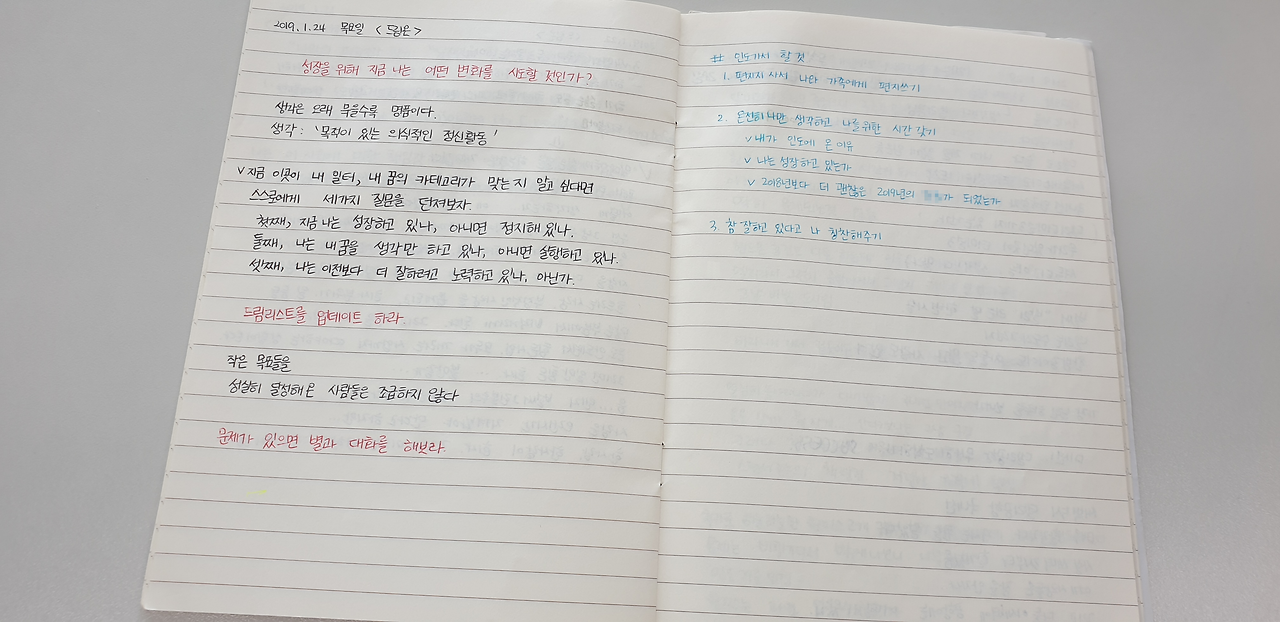 2019.1.24 목요일 <드림온>
성장을 위해 지금 나는 어떤 변화를 시도할 것인가?
생각은 오래 묵을수록 명품이다.
생각 : '목적이 있는 의식적인 정신활동'
∨ 지금 이곳이 내 일터, 내 꿈의 카테고리가 맞는지 알고 싶다면
스스로에게 세가지 질문을 던져보자.
첫째, 지금 나는 성장하고 있나, 아니면 정지해있나.
둘째, 나는 내꿈을 생각만 하고 있나, 아니면 실행하고 있나.
셋째, 나는 이전보다 더 잘하려고 노력하고 있나, 아닌가.
드림리스트를 업데이트 하라
작은 목표들을
성실히 달성해온 사람들은 조급하지 않다
문제가 있으면 별과 대화를 해보라.
# 인도가서 할 것
1. 편지지 사서 나라 가족에게 편지쓰기
2. 온전히 나만 생각하고 나를 위한 시간 갖기
∨ 내가 인도에 온 이유
∨ 나는 성장하고 있는가
∨ 2018년보다 더 괜찮은 2019년의 가 되었는가
3. 참 잘하고 있다고 나 칭찬해주기